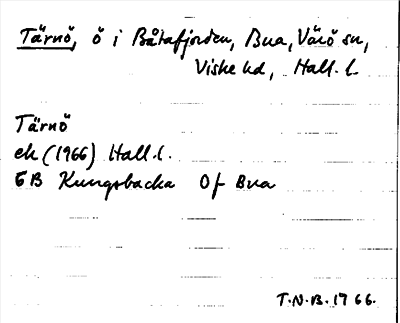 Tärnö, ö i Båtafjorden, Bua, Värö sn,
Viske hd, Hall. l.
Tärnö
ek (1966) Hall. l.
GB Kungsbacka Of Bua
T.N.B. 1966.